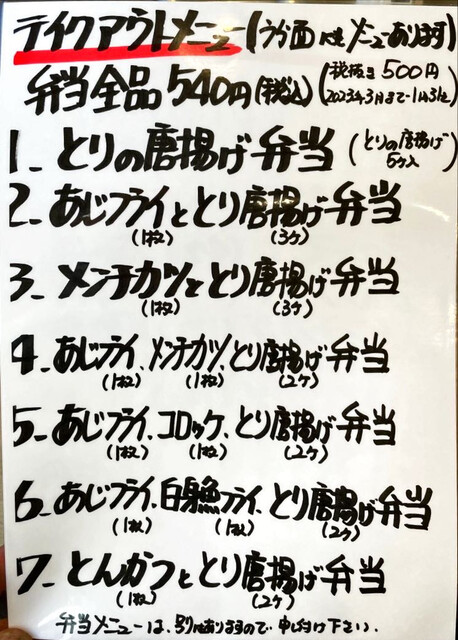 テイクアウトメニュー(うら面にもメニューあります)
弁当全品540円(税込)(税抜き500円
2023年3月まで
1- とりの唐揚げ弁当(とりの唐揚げ
5ケ入)
2- あじフライととり唐揚げ弁当
(1枚) (3ケ)
3- メンチカツととり唐揚げ弁当
(1枚) (3ケ)
4- あじフライ、メンチカツ、とり唐揚げ弁当
(1枚) (1枚) (2ケ)
5- あじフライ、コロッケ、とり唐揚げ弁当
(1枚) (1枚) (2ケ)
6- あじフライ、白身魚フライ、とり唐揚げ弁当
(1枚) (1枚) (2ケ)
7- とんかつととり唐揚げ弁当
(1枚) (2ケ)
弁当メニューは、別にありますので申し付け下さい.